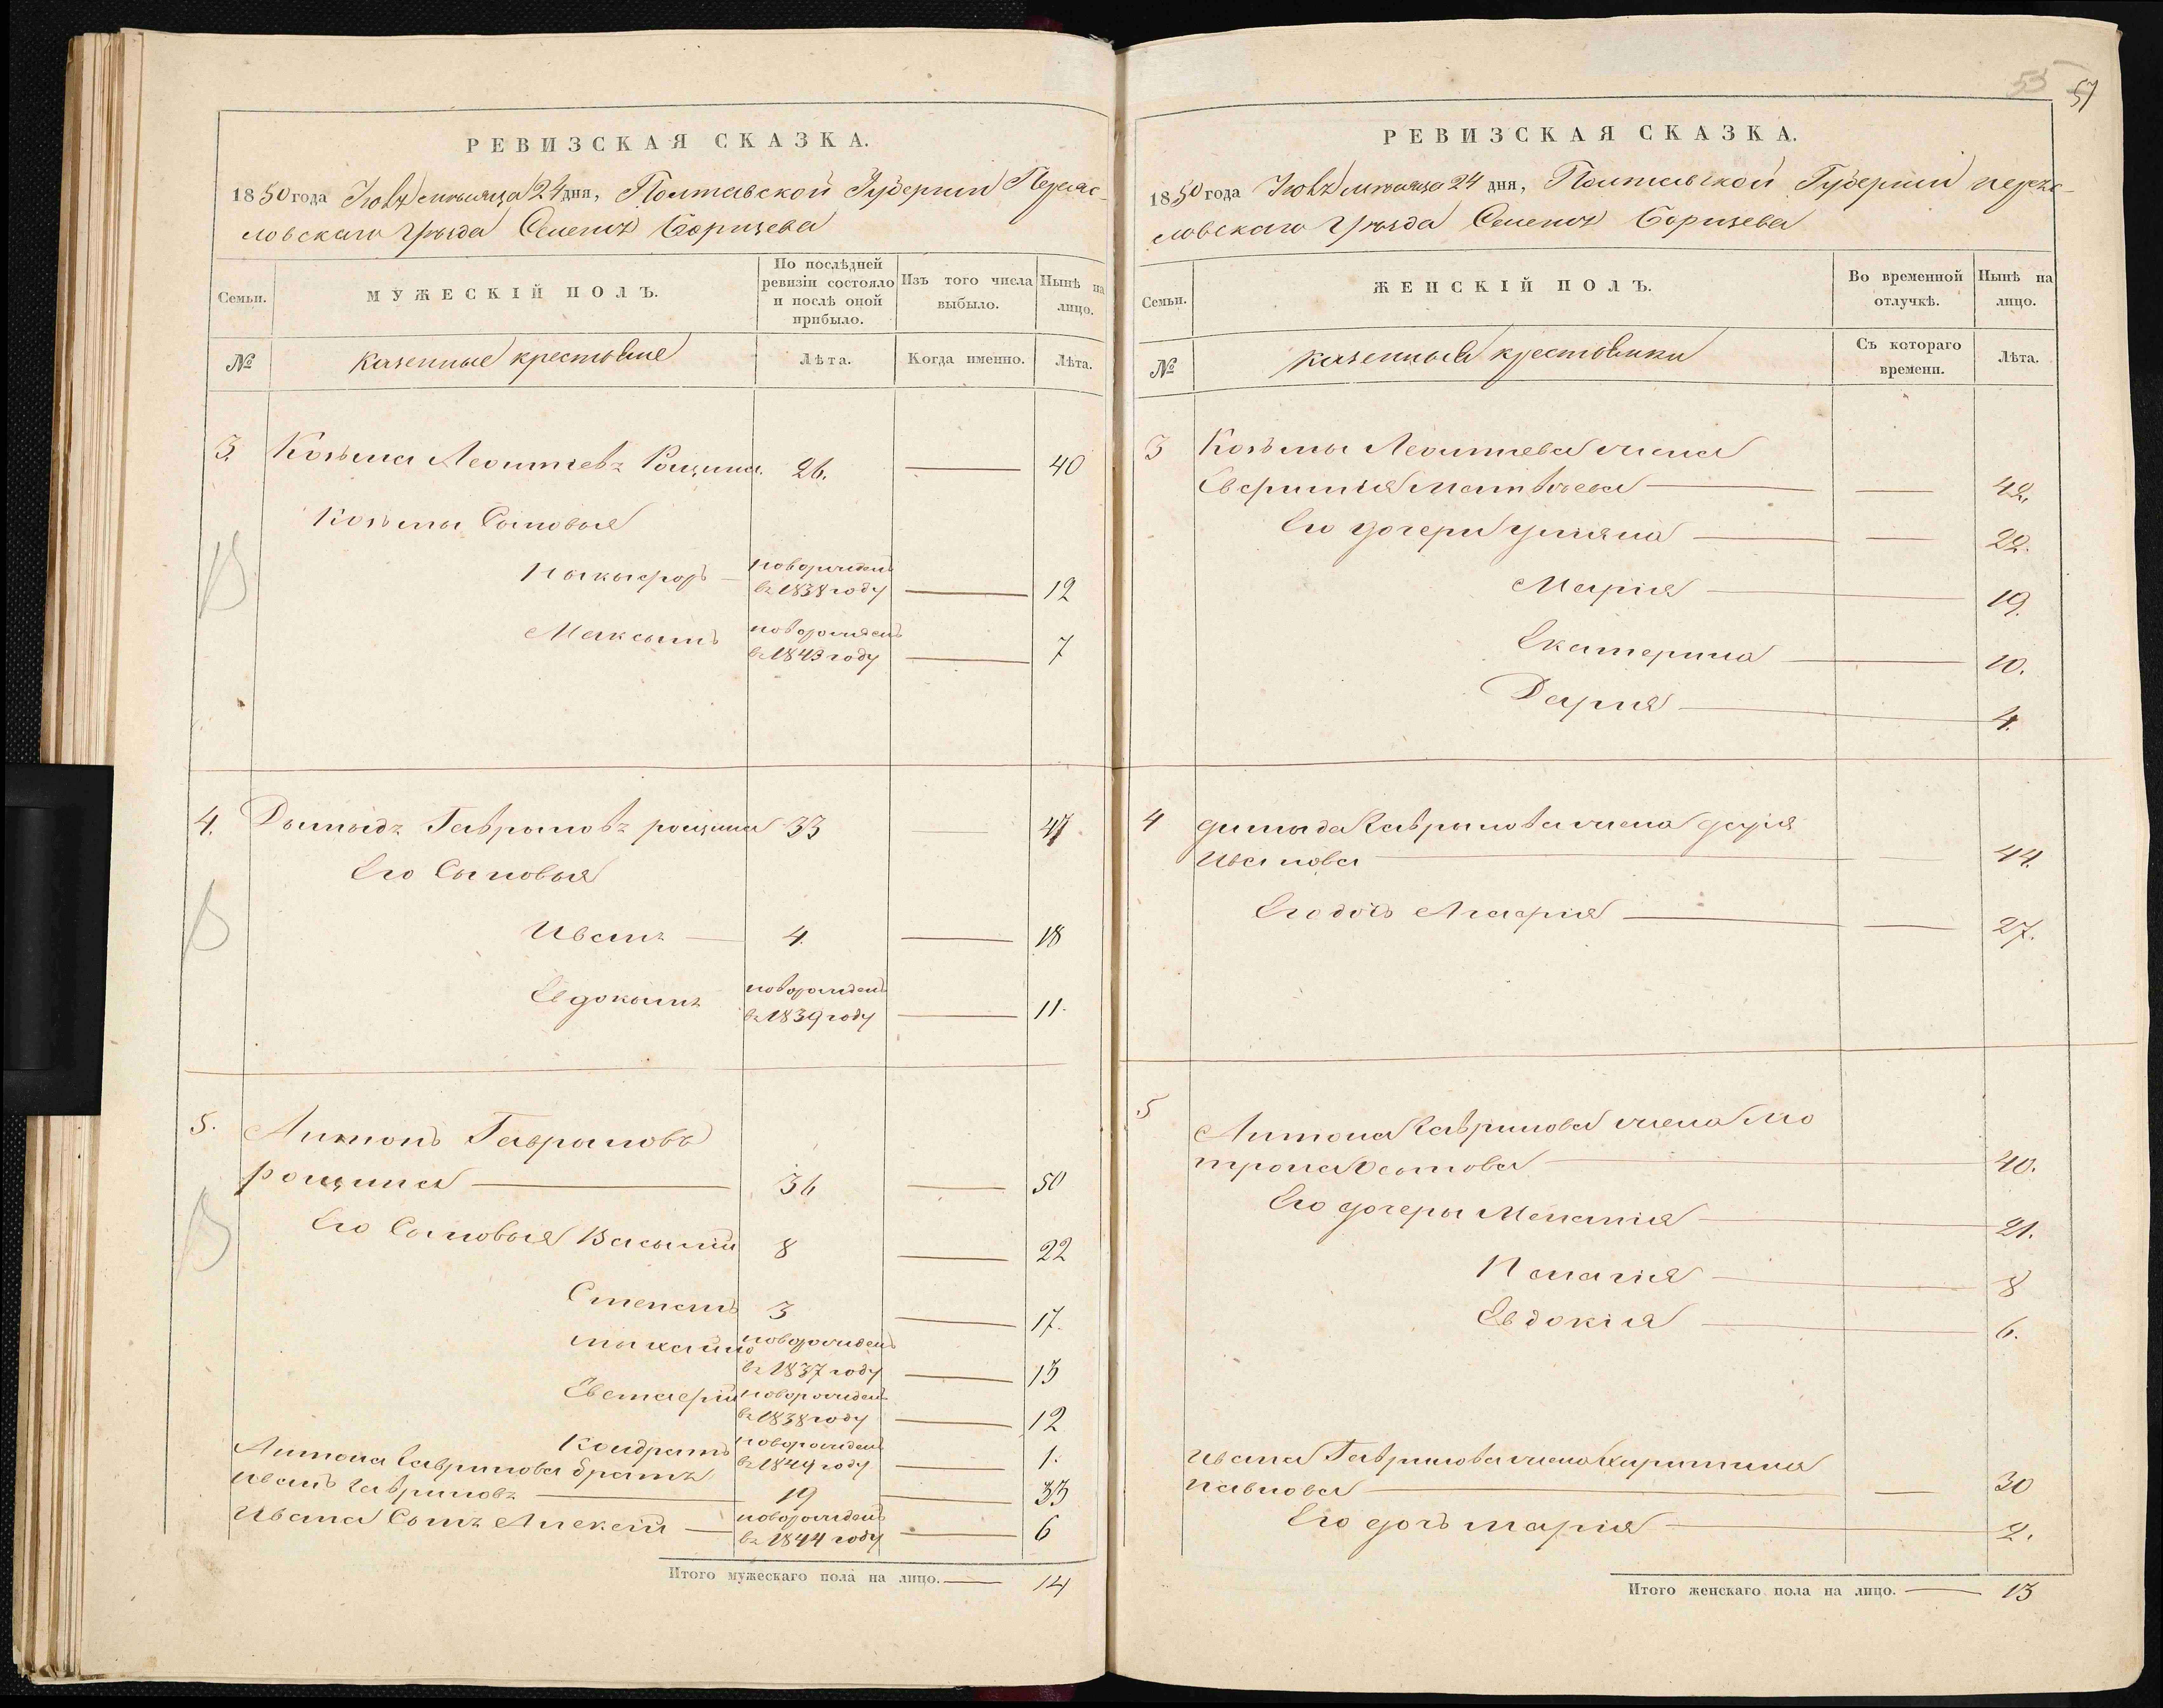 РЕВИЗСКАЯ СКАЗКА.
1850 года Июня месяца 24 дня, Полтавской Губернии Переяс-
ловскаго Уѣзда Селенія Борщева
Семьи.
МУЖЕСКІЙ ПОЛЪ.
По послѣдней ревизіи состояло и послѣ оной прибыло.
Изъ того числа выбыло.
Нынѣ на лицо.
№
казенные крестьяне
Лѣта.
Когда именно.
Лѣта.
3. Козьма Леонтіевъ Рощина 26. 40
Козьмы Сыновья
Ныкыфоръ новорожденъ
въ 1838 году 12
Максымъ новорожденъ
въ 1843 году 7
4. Дымыдъ Гаврыловъ рощина 33 47
Его Сыновья
Иванъ 4. 18
Евдокымъ новорожденъ
въ 1839 году 11.
5. Антонъ Гаврыловъ
рощина 36 50
Его Сыновья Васылій 8 22
Степанъ 3 17.
мыхайло новорожденъ
въ 1837 году 13
Евстафій новорожденъ
въ 1838 году 12
Кондратъ новорожденъ
въ 1849 году 1.
Антона Гаврилова братъ
Иванъ Гавриловъ 19 33
Ивана Сынъ Алексій новорожденъ
въ 1844 году 6
Итого мужескаго пола на лицо. 14
55 57
РЕВИЗСКАЯ СКАЗКА.
1850 года Июня месяца 24 дня, Полтавской Губерніи переяс-
ловскаго Уѣзда Селенія Борищева
Семьи.
ЖЕНСКІЙ ПОЛЪ.
Во временной отлучкѣ.
Нынѣ на лицо.
№
казенныя крестьянки
Съ котораго времени.
Лѣта.
3 Козьмы Леонтіева жена
Матвѣева 42.
Его дочери Уліяна 22.
Марія 19.
Екатерина 10.
Дарія 4.
4 димыда Гаврылова жена дарія
Иванова 44.
Его дочь Марфія 27.
5 Антона Гаврилова жена Мо
трона Осыпова 40.
Его дочеры Меланія 21.
Пелагія 8
Евдокія 6.
Ивана Гаврилова жена Харитина
павлова 30
Его дочь марія 2.
Итого женскаго пола на лицо. 13